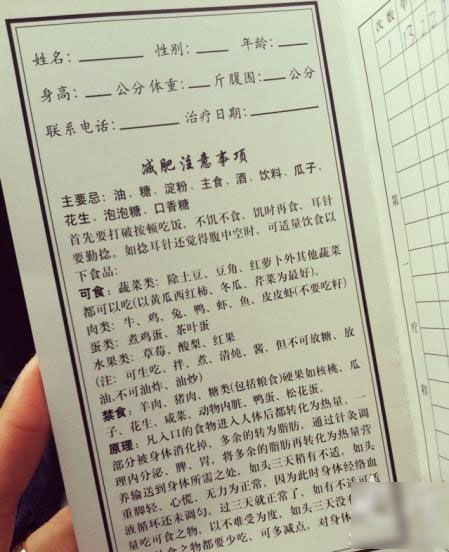 姓名：____ 性别：____ 年龄：____
身高：____公分 体重：____斤 腹围：____公分
联系电话：______ 治疗日期：______
减肥注意事项
主要忌：油、糖、淀粉、主食、酒、饮料、瓜子、
花生、泡泡糖、口香糖
首先要打破按顿吃饭，不饥不食，饥时再食，耳针
要勤捻。如捻耳针还觉得腹中空时，可适量饮食以
下食品：
可食：蔬菜类：除土豆、豆角、红萝卜外其他蔬菜
都可以吃(以黄瓜西红柿、冬瓜、芹菜为最好)。
肉类：牛、鸡、兔、鸭、虾、鱼、皮皮虾(不要吃籽)
蛋类：煮鸡蛋、茶叶蛋
水果类：草莓、酸梨、红果
(注：可生吃，拌、煮、清炖、酱，但不可放糖、放
油,不可油炸、油炒)
禁食：羊肉、猪肉、糖类(包括粮食)硬果如核桃、瓜
子、花生、咸菜、动物内脏、鸭蛋、松花蛋。
原理：凡入口的食物进入人体后都转化为热量，一
部分被身体消化掉，多余的转为脂肪，通过针灸调
理内分泌，脾、胃，将多余的脂肪再转化为热量营
养输送到身体所需之处，如头三天稍有不适，如头
重脚轻、心慌、无力为正常，因为此时身体经络血
液循环还未调匀，过三天就正常了，如有不适可适
量吃可食之物，以不难受为度，如头三天没
食之物都要少吃，可多减点，对身体
次数
1
第
一
疗
程